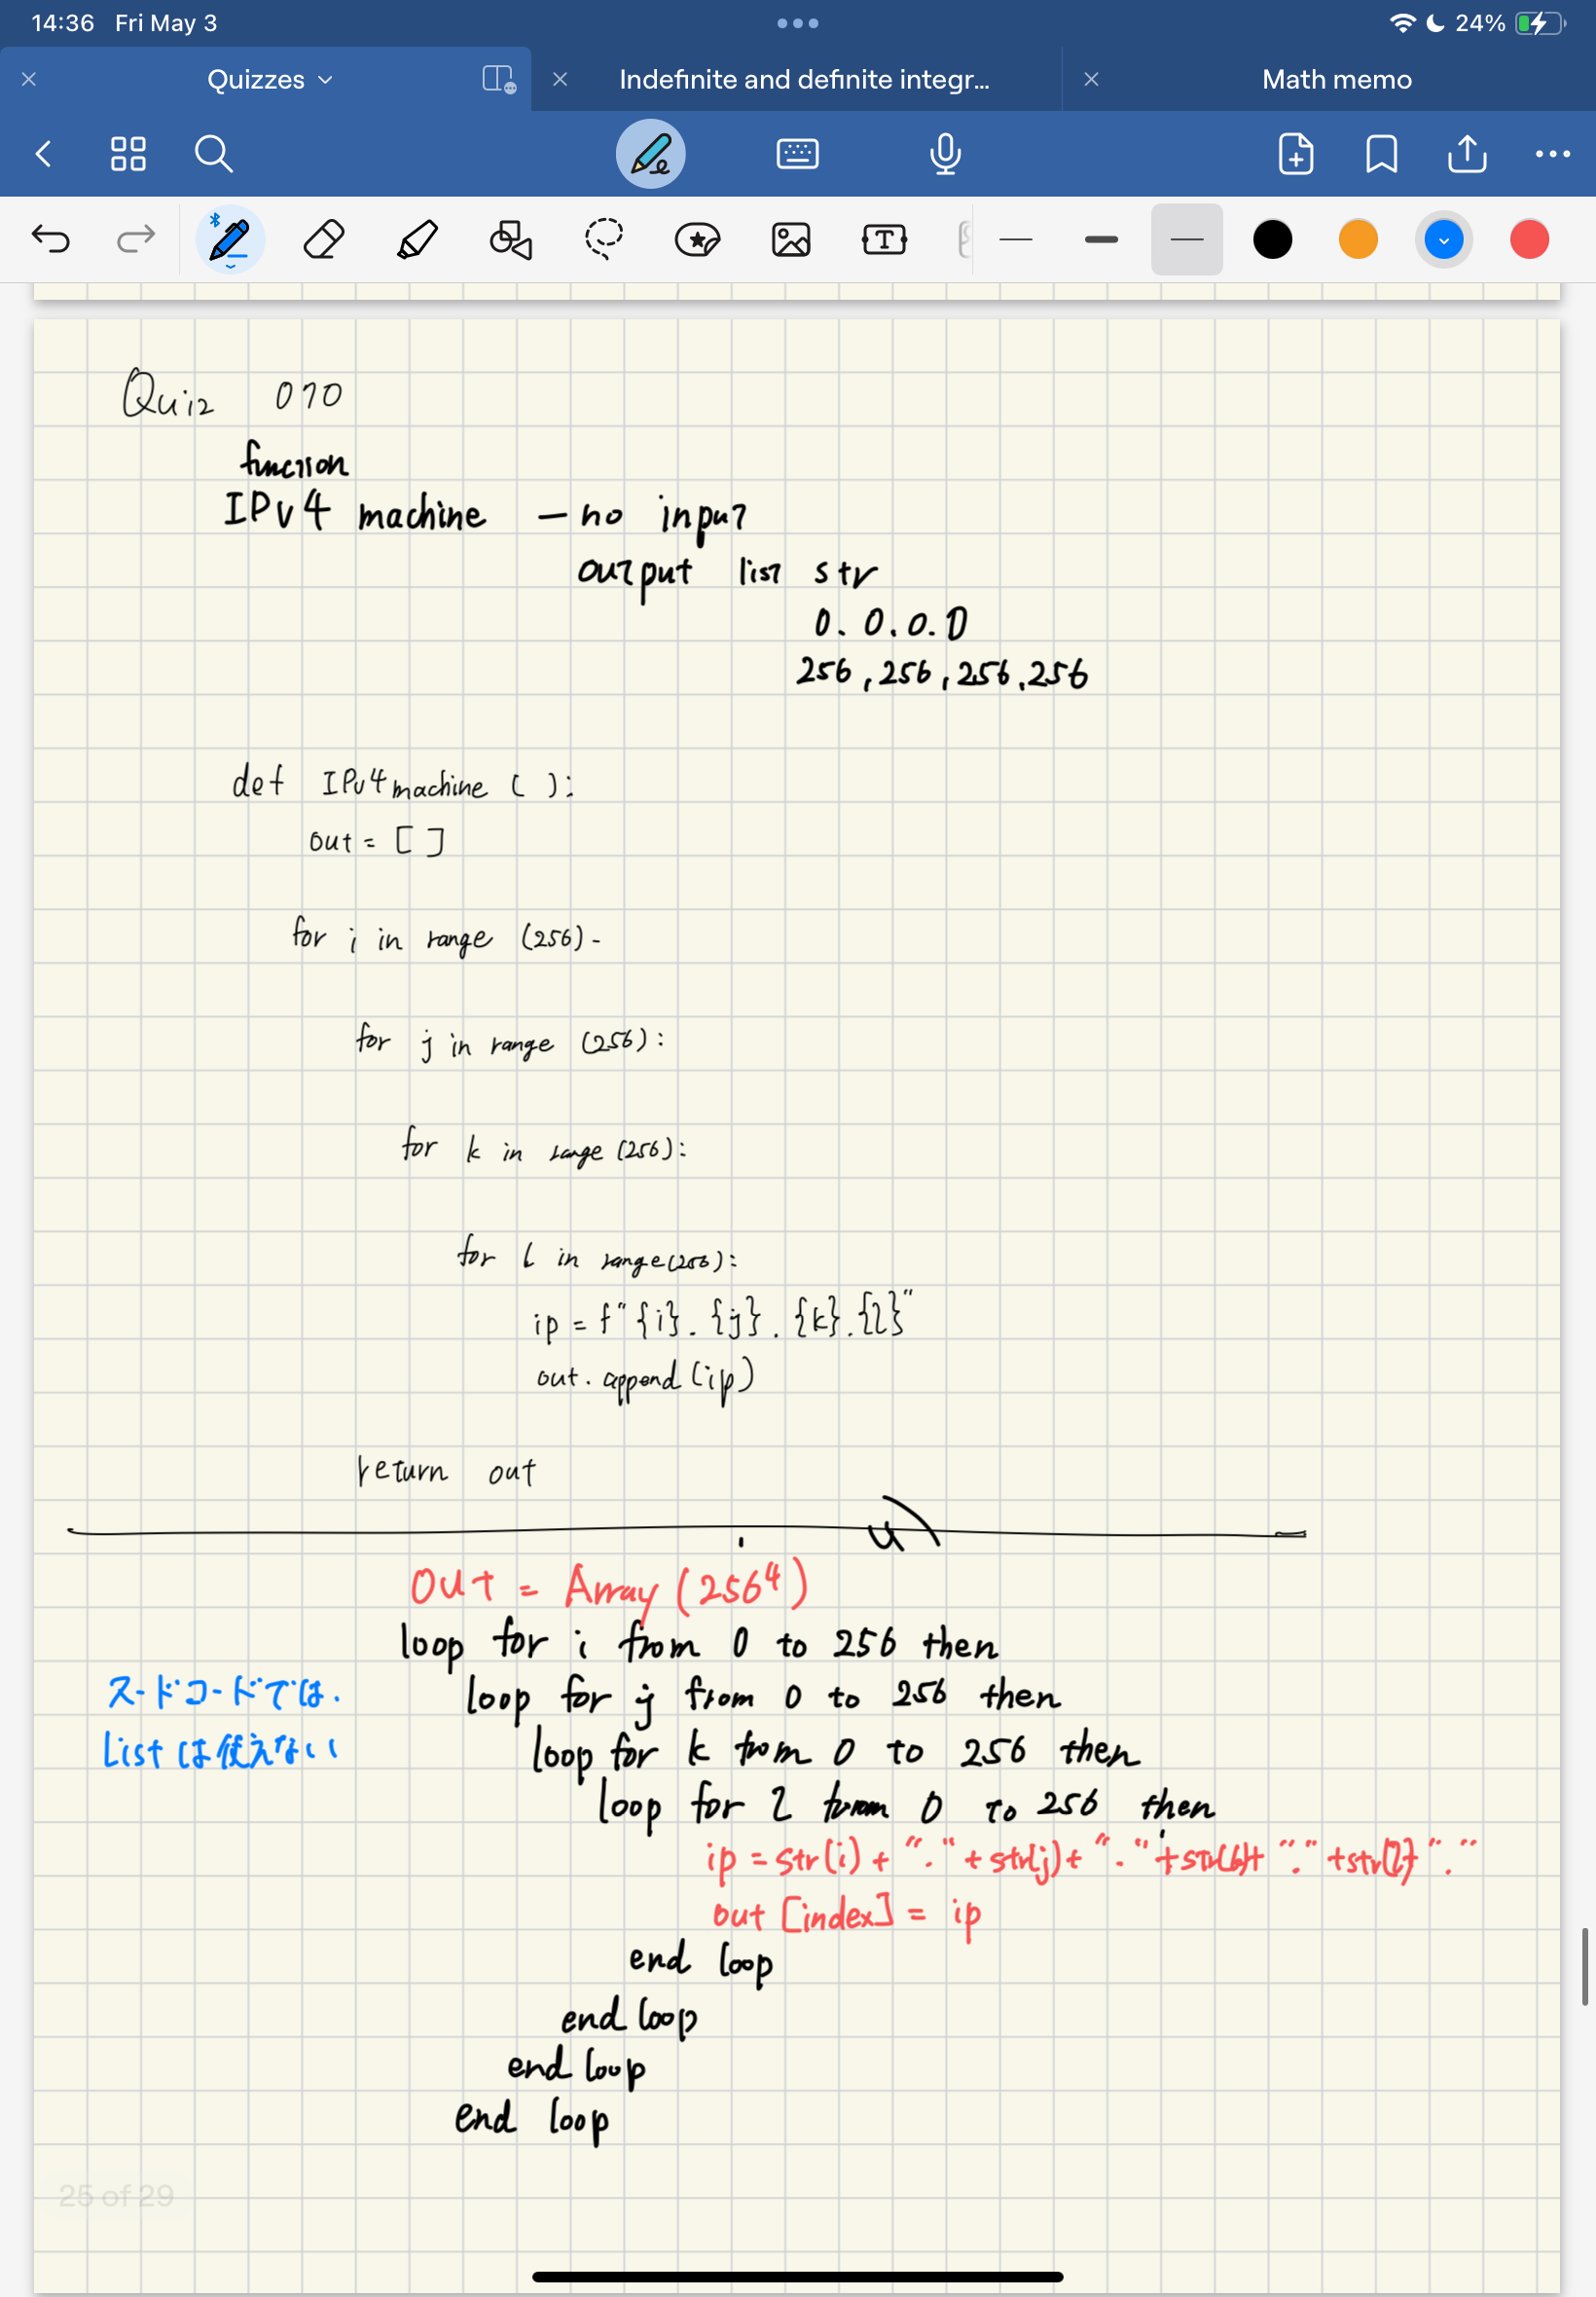 14:36 Fri May 3
24%
Quizzes
Indefinite and definite integr...
Math memo
Quiz 070
function
IPv4 machine – no input
output list str
0.0.0.0
256,256,256.256
def IPv4machine ( ):
out = [ ]
for i in range (256) -
for j in range (256):
for k in range (256):
for l in range(256):
ip = f"{i}.{j}.{k}.{l}"
out.append(ip)
return out
out = Array (256⁴)
loop for i from 0 to 256 then
スードコードでは、
loop for j from 0 to 256 then
Listは使えない
loop for k from 0 to 256 then
loop for l from 0 to 256 then
ip = str(i) + "." + str(j) + "." + str(k) + "." + str(l) + "."
out [index] = ip
end loop
end loop
end loop
end loop
25 of 29